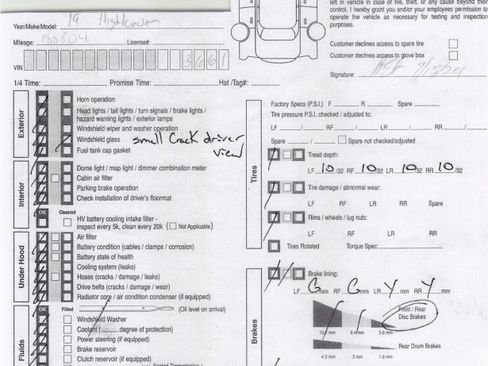 left in vehicle in case of fire, theft, or any cause beyond their
control. I hereby grant you and/or your employees permission to
operate the vehicle as necessary for testing and inspection
purposes.
Year/Make/Model: 19 Highlander
Mileage: License#:
VIN 3661
Customer declines access to spare tire
Customer declines access to glove box
Signature:
1/4 Time: Promise Time: Hat /Tag#:
Exterior
Horn operation
Head lights / tail lights / turn signals / brake lights /
hazard warning lights / exterior lamps
Windshield wiper and washer operation
Windshield glass small Crack driver view
Fuel tank cap gasket
Interior
Dome light / map light / dimmer combination meter
Cabin air filter
Parking brake operation
Check installation of driver's floormat
OK Cleared
HV battery cooling intake filter -
Inspect every 5k, clean every 20k ( Not Applicable)
Under Hood
Air filter
Battery condition (cables / clamps / corrosion)
Battery state of health
Cooling system (leaks)
Hoses (cracks / damage / leaks)
Drive belts (cracks / damage / wear)
Radiator core / air condition condenser (if equipped)
OK Filled (Oil level on arrival)
Fluids
Windshield Washer
Coolant ( degree of protection)
Power steering (if equipped)
Brake reservoir
Clutch reservoir (if equipped)
Tires
Factory Specs (P.S.I.) F R Spare
Tire pressure P.S.I. checked / adjusted to:
LF / RF / LR / RR /
Spare / Spare not checked/adjusted
Tread depth:
LF 10/32 RF 10/32 LR 10/32 RR 10/32
Tire damage / abnormal wear:
LF RF LR RR Spare
Rims / wheels / lug nuts:
LF RF LR RR
Tires Rotated Torque Spec:
Brakes
Brake lining:
LF G mm RF G mm LR Y mm RR Y mm
Front / Rear
Disc Brakes
Rear Drum Brakes